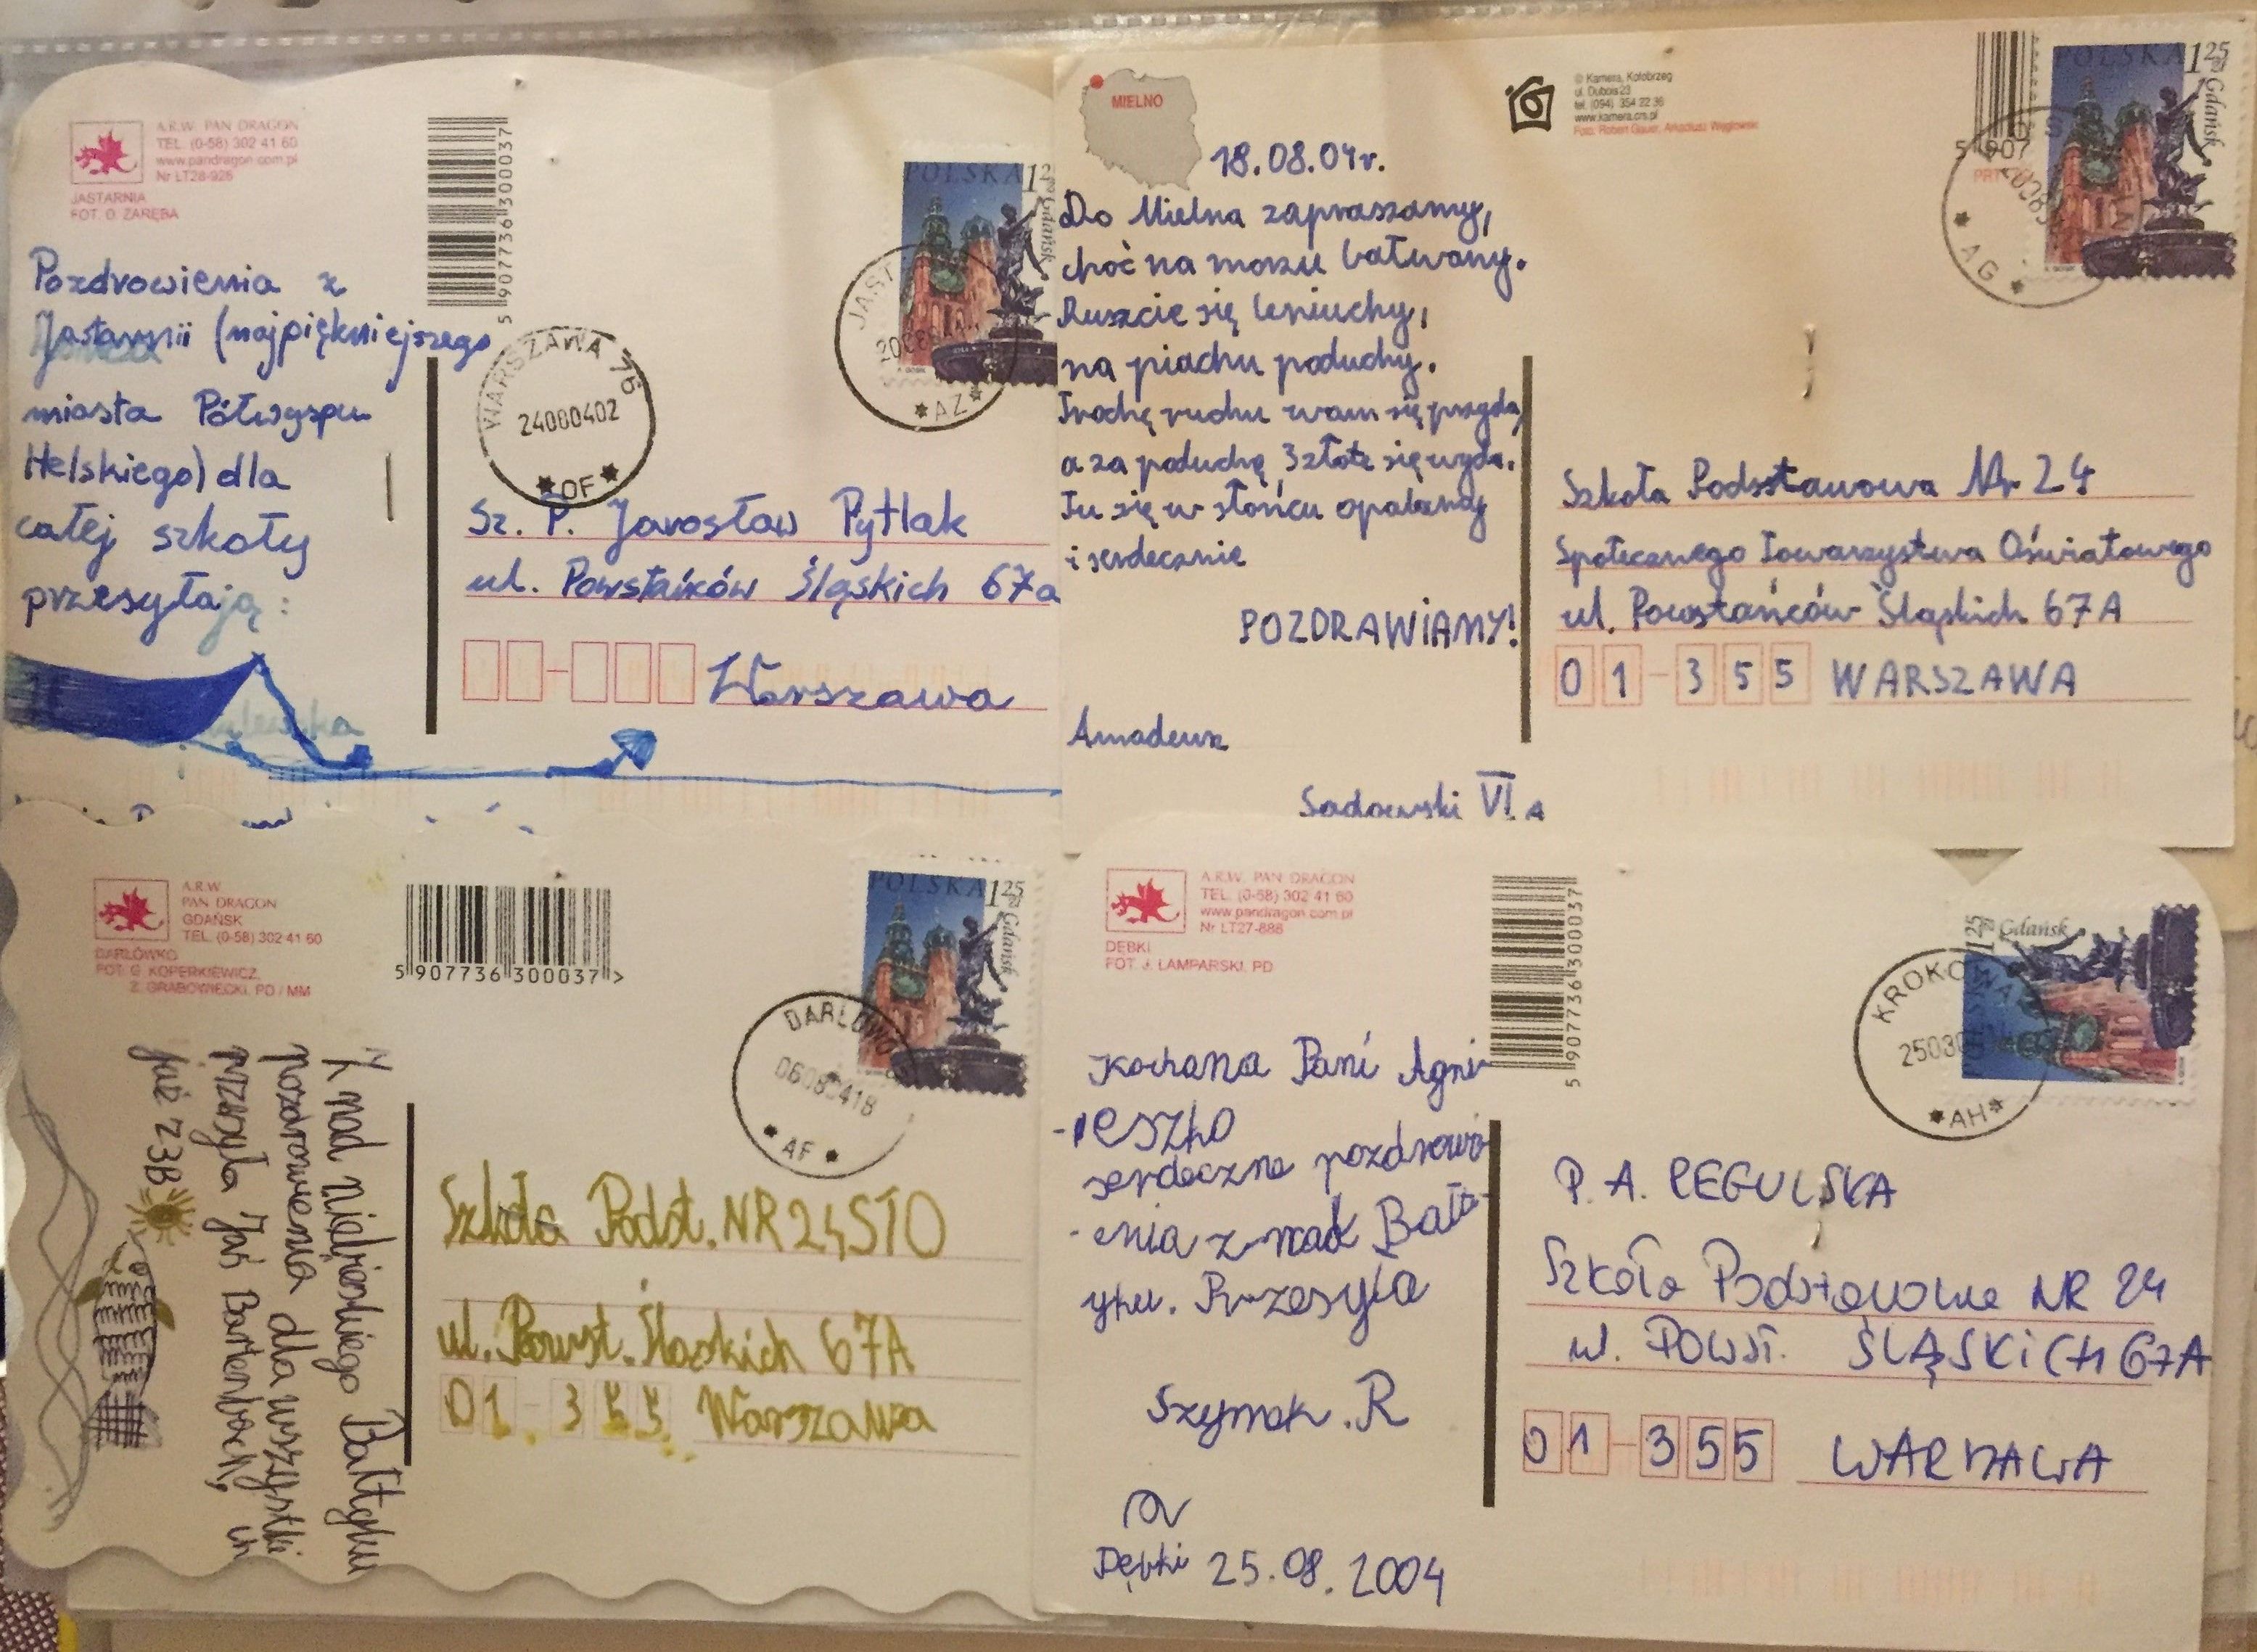 A.R.W. PAN DRAGON
TEL. (0-58) 302 41 60
www.pandragon.com.pl
Nr LT28-926
JASTARNIA
FOT. O. ZARĘBA
5 907736 300037
POLSKA
Gdańsk
Pozdrowienia z
Jastarnii (najpiękniejszego
miasta Półwyspu
Helskiego) dla
całej szkoły
przesyłają:
WARSZAWA 76
24080402
OF
JAST
AZ
Sz. P. Jarosław Pytlak
ul. Powstańców Śląskich 67a
Warszawa
MIELNO
© Kamera, Kołobrzeg
ul. Dubois 23
tel. (094) 354 22 36
www.kamera.crs.pl
Foto: Robert Gauer, Arkadiusz Węglowski
5 907
POLSKA 1 25 zł
Gdańsk
AG
18.08.04r.
Do Mielna zapraszamy,
choć na morzu bałwany.
Ruszcie się leniuchy,
na piachu poduchy.
Trochę ruchu wam się przyda,
a za poduchę 3 złote się wyda.
Tu się w słońcu opalamy
i serdecznie
POZDRAWIAMY!
Amadeusz
Sadowski VI A
Szkoła Podstawowa Nr 24
Społecznego Towarzystwa Oświatowego
ul. Powstańców Śląskich 67A
01-355 WARSZAWA
A.R.W.
PAN DRAGON
GDAŃSK
TEL. (0-58) 302 41 60
DARŁÓWKO
FOT. G. KOPERKIEWICZ,
Z. GRABOWIECKI, PD / MM
5 907736 300037 >
POLSKA 1 25 zł
Gdańsk
DARŁOWO
06080418
AF
Z nad niebieskiego Bałtyku
pozdrowienia dla wszystkich
przesyła Jaś
już z 3B
Szkoła Podst. NR 24 STO
ul. Powst. Śląskich 67A
01-355 Warszawa
A.R.W. PAN DRAGON
TEL. (0-58) 302 41 60
www.pandragon.com.pl
Nr LT27-888
DĘBKI
FOT. J. LAMPARSKI, PD
5 907736 300037
1 25 zł Gdańsk
KROKOWA
AH
Kochana Pani Agni
-eszko
serdeczne pozdrowi
-enia z nad Bałt
yku. Przesyła
Szymek.R
Dębki 25.08.2004
P. A. REGULSKA
Szkoła Podstawowa NR 24
ul. POWST. ŚLĄSKICH 67A
01-355 WARSZAWA